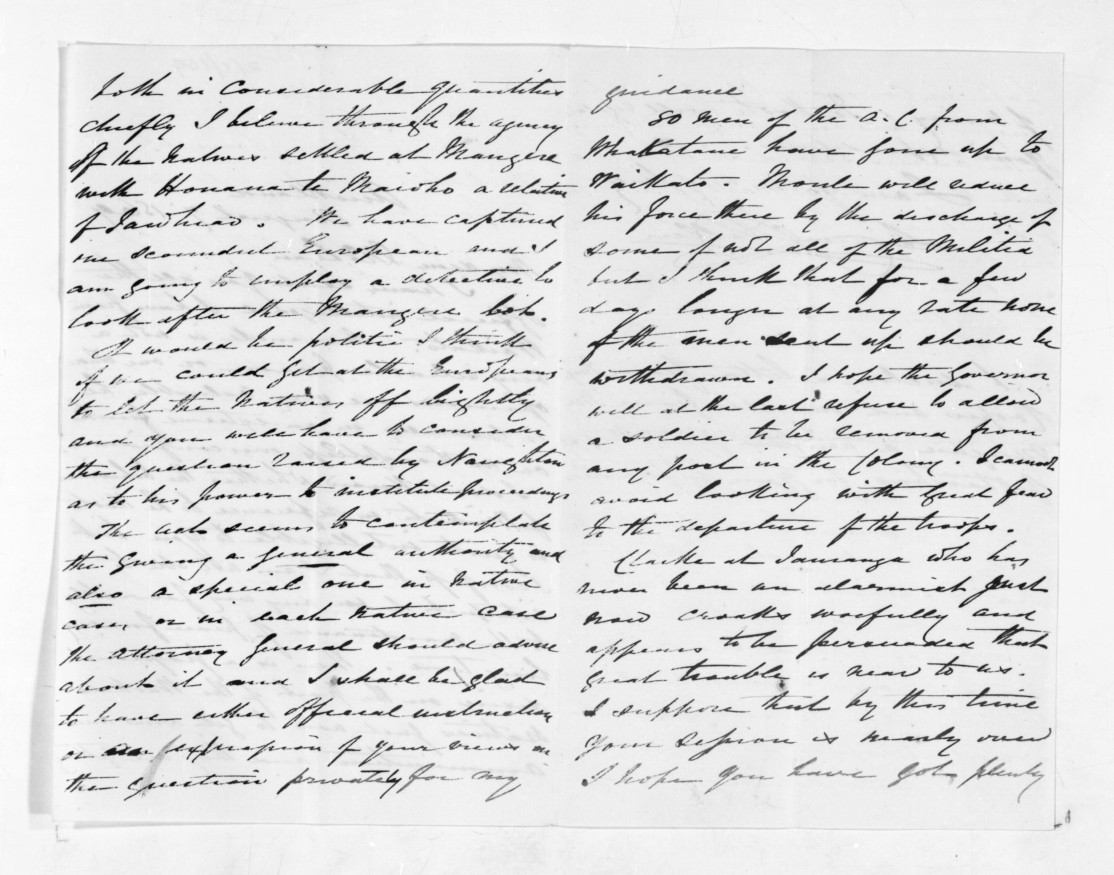 both in considerable quantities
chiefly I believe through the agency
of the Natives settled at Mangere
with Honana te Maioho a relative
of Tawhiao. We have captured
one scoundrel European and I
am going to employ a detective to
look after the Mangere lot.
It would be politic I think
if we could get at the Europeans
to let the Natives off lightly
and you will have to consider
the question raised by Naughton
as to his power to institute proceedings
The act seems to contemplate
the giving a general authority and
also a special one in Native
cases, or in each Native case
the Attorney General should advise
about it and I shall be glad
to have either official instruction
or expression of your views on
the question privately for my
guidance
80 men of the A.C. from
Whakatane have gone up to
Waikato. Moule will reduce
his force there by the discharge of
some if not all of the Militia
but I think that for a few
days longer at any rate none
of the men sent up should be
withdrawn. I hope the Governor
will at the last refuse to allow
a soldier to be removed from
any post in the Colony. I cannot
avoid looking with great fear
to the departure of the troops.
Clarke at Tauranga who has
never been an alarmist just
now croaks woefully and
appears to be persuaded that
great trouble is near to us.
I suppose that by this time
your session is nearly over
I hope you have got plenty